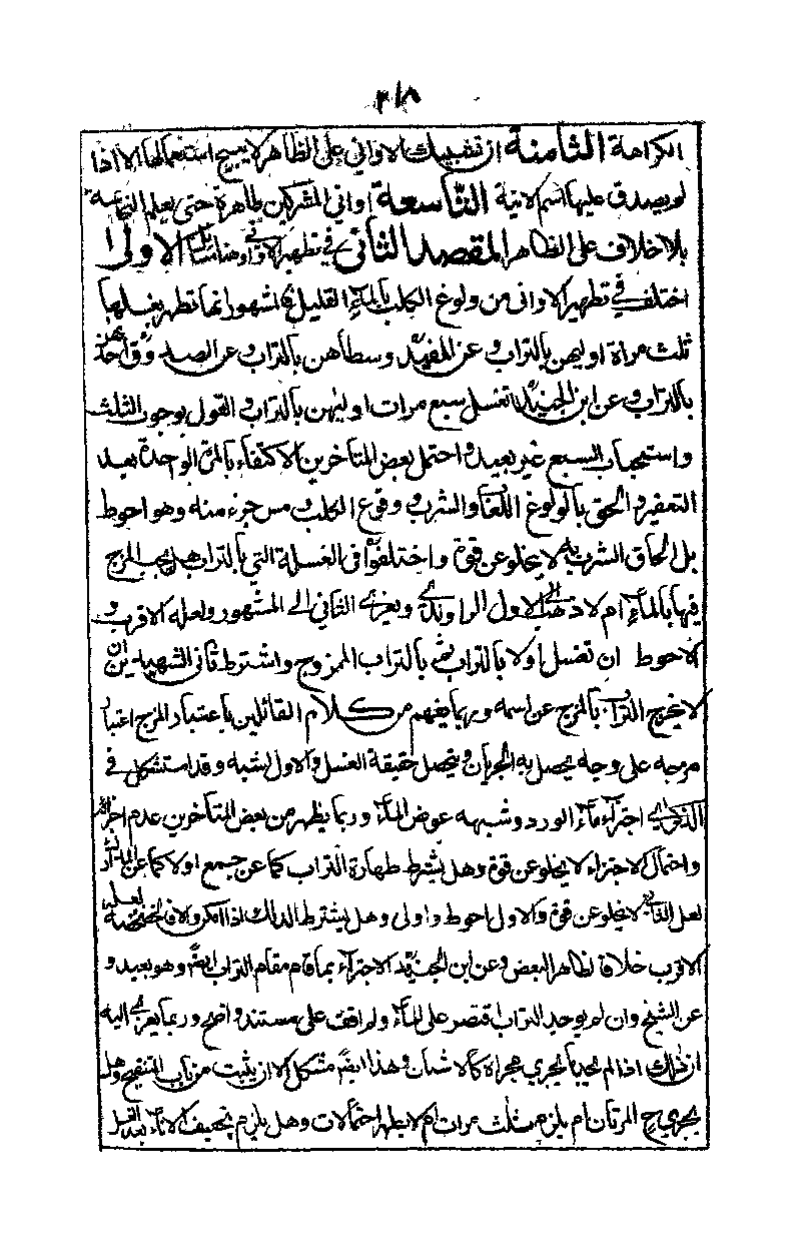 ٣١٨
الكراهة الثامنة ان تشبيك الاواني على الظاهر لا يبيح استعمالها الا اذا
لم يصدق عليها اسم الانية التاسعة اواني المشركين طاهرة حتى يعلم النجاسة
بلا خلاف على الظاهر المقصد الثاني في تطهير الاواني وهنا مسائل الاولى
اختلف في تطهير الاواني من ولوغ الكلب بالماء القليل فالمشهور انها تطهر بغسلها
ثلث مراة اوليهن بالتراب وعن المفيد وسطاهن بالتراب وعن الصدوق احديهن
بالتراب وعن ابن الجنيد تغسل سبع مرات اوليهن بالتراب والقول بوجوب الثلث
واستحباب السبع غير بعيد واحتمل بعض المتأخرين الاكتفاء بالمرة الوحدة بعد
التعفير والحق بالولوغ اللطع والشرب و وقوع الكلب ومس جزء منه وهو احوط
بل الحاق الشرب به لا يخلو عن قوة واختلفوا في الغسلة التي بالتراب هل يجب المزج
فيها بالماء ام لا ذهب الى الاول الراوندي ويعزى الثاني الى المشهور ولعله الاقرب و
الاحوط ان تغسل اولا بالتراب ثم بالتراب الممزوج واشترط ثاني الشهيدين ان
لا يخرج التراب بالمزج عن اسمه وربما يفهم من كلام القائلين باعتبار المزج اعتبار
مزجه على وجه يحصل به الجريان ويحصل حقيقة الغسل والاول اشبه وقد استشكل في
اجتزاء ماء الورد وشبهه عوض الماء وربما يظهر من بعض المتأخرين عدم اجزائه
واحتمال الاجتزاء لا يخلو عن قوة وهل يشترط طهارة التراب كما عن جمع اولا كما عن
لعل الثاني لا يخلو عن قوة والاول احوط واولى وهل يشترط الدلك اذا امكن والا
الاقرب خلافا لظاهر البعض وعن ابن الجنيد الاجتزاء بما قام مقام التراب ايضا وهو بعيد و
عن الشيخ وان لم يوجد التراب اقتصر على الماء ولم اقف على مستند واضح وربما يعزى اليه
ان ذلك اذا لم يجد ما يجري مجراه كالاشنان وهذا ايضا مشكل الا ان يثبت من باب التنقيح وهل
يجزي ح المرتان ام يلزم ثلث مرات ام لا يطهر احتمالات وهل يلزم تجفيف الاناء بعد الغسل